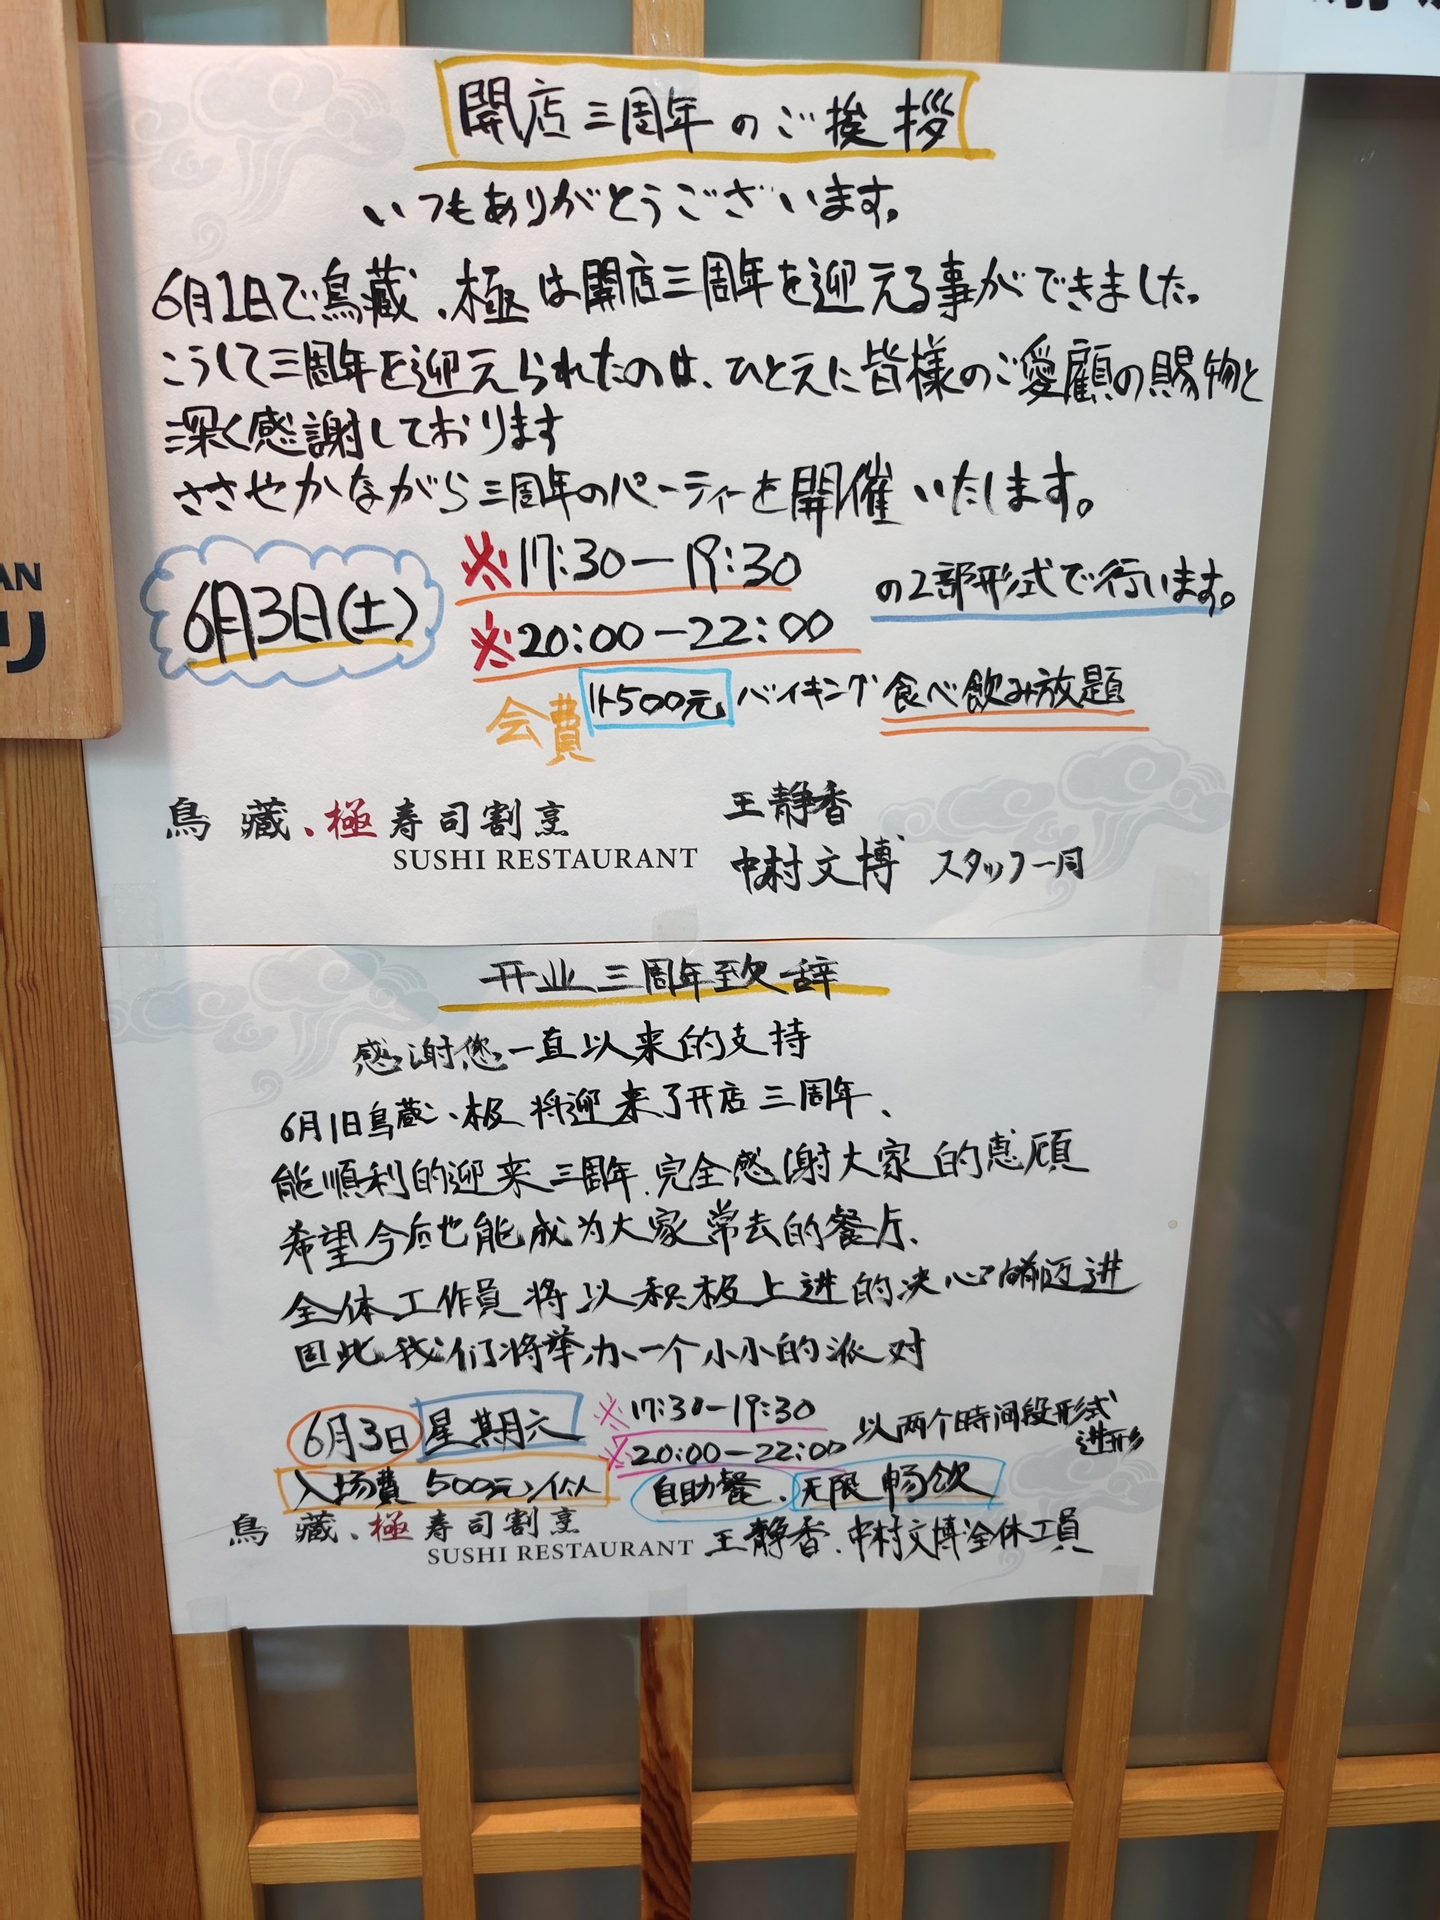 開店三周年のご挨拶
いつもありがとうございます。
6月1日で鳥藏、極は開店三周年を迎える事ができました。
こうして三周年を迎えられたのは、ひとえに皆様のご愛顧の賜物と
深く感謝しております
ささやかながら三周年のパーティーを開催いたします。
6月3日(土)
※17:30－19:30
※20:00－22:00
の2部形式で行います。
会費 1人500元 バイキング 食べ飲み放題
鳥藏、極寿司割烹
SUSHI RESTAURANT
王静香
中村文博 スタッフ一同
开业三周年致辞
感谢您一直以来的支持
6月1日鳥藏、极将迎来了开店三周年、
能顺利的迎来三周年、完全感谢大家的惠顾
希望今后也能成为大家常去的餐厅、
全体工作员将以积极上进的决心向前迈进
因此我们将举办一个小小的派对
6月3日 星期六
※17:30－19:30
※20:00－22:00
以两个时间段形式
进行
入场費 500元/1人
自助餐、无限畅饮
鳥藏、極寿司割烹
SUSHI RESTAURANT
王静香、中村文博全体工員
AN
リ